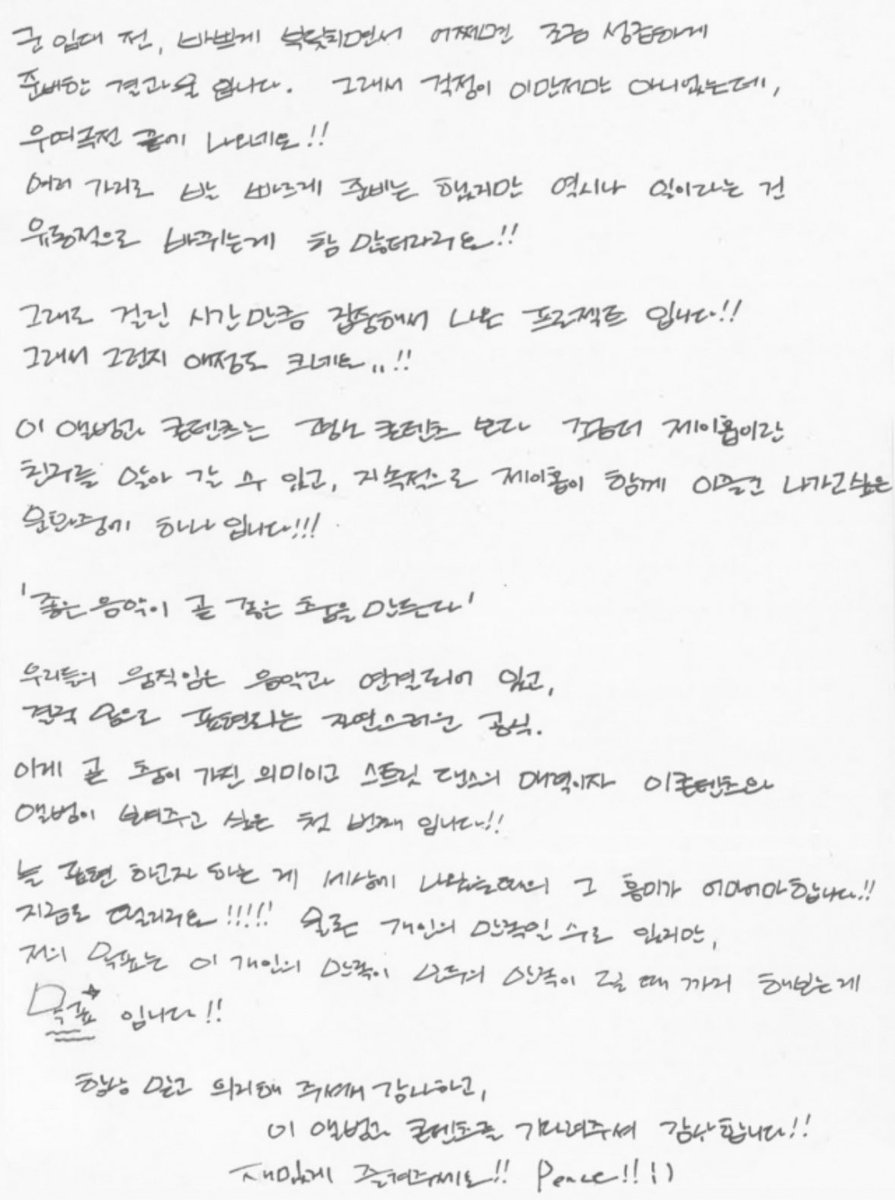 군 입대 전, 바쁘게 북닥되면서 어쩌면 조금 성급하게
준비한 결과물 입니다. 그래서 걱정이 이만저만 아니었는데,
우여곡절 끝에 나오네요!!
여러 가지로 발 빠르게 준비는 했지만 역시나 일이라는 건
유동적으로 바뀌는게 참 많더라구요!!
그래도 걸린 시간만큼 집중해서 나온 프로젝트 입니다!!
그래서 그런지 애정도 크네요..!!
이 앨범과 콘텐츠는 어떤 콘텐츠 보다 좀더 제이홉이란
친구를 알아 갈 수 있고, 지속적으로 제이홉이 함께 이끌고 나가고싶은
문화중에 하나 입니다!!!
'좋은 음악이 곧 좋은 춤을 만든다'
우리들의 움직임은 음악과 연결되어 있고,
결국 춤으로 표현되는 자연스러운 공식.
이게 곧 춤이 가진 의미이고 스트릿 댄스의 매력이자 이콘텐츠와
앨범이 보여주고 싶은 첫 번째 입니다!!
늘 표현 하고자 하는 게 세상에 나왔을때의 그 흥미가 어마어마합니다!!
지금도 떨리구요!!!!! 물론 개인의 만족일 수도 있지만,
저의 목표는 이 개인의 만족이 모두의 만족이 될 때 까지 해보는게
목표 입니다!!
항상 믿고 의지해 주셔서 감사하고,
이 앨범과 콘텐츠를 기다려주셔 감사합니다!!
재밌게 즐겨주세요!! Peace!! :)